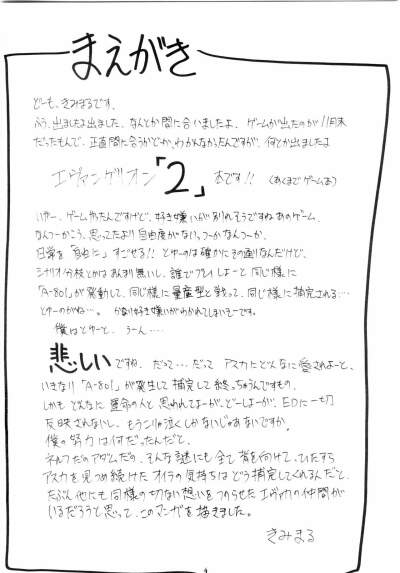 まえがき
どーも、きみまるです。
ふう、出ましたよ出ました、なんとか間に合いましたよ、ゲームが出たのが11月末
だったもんで、正直間に合うかどうか、わかんなかったんですが、何とか出ましたよ
エヴァンゲリオン「2」本です!! (あくまでゲームな)
いやー、ゲームやったんですけど、好き嫌いが別れそうですねあのゲーム、
なんつーかこう、思ったより自由度がない、つーかなんつーか、
日常を「自由に」すごせる!! とゆーのは確かにその通りなんだけど、
シナリオ分岐とかはあんまり無いし、誰でプレイしよーと同じ様に
「A-801」が発動して、同じ様に量産型と戦って、同じ様に補完される…
とゆーのがね…。 かなり好き嫌いがわかれてしまいそーです。
僕はとゆーと、うーん……
悲しいですね、だって…だって アスカにどんなに愛されよーと、
いきなり「A-801」が発生して補完して終っちゃうんですもの、
しかもどんなに運命の人と思われてよーが、どーしよーが、EDに一切
反映されないし、もうこりゃ泣くしかないじゃあないですか。
僕の努力は何だったんだと、
ネルフだのアダムだの、そんな謎にも全て背を向けて、ひたすら
アスカを見つめ続けたオイラの気持ちはどう補完してくれるんだと、
たぶん他にも同様の切ない想いをつのらせたエヴァ2の仲間が
いるだろうと思って、このマンガを描きました。
きみまる